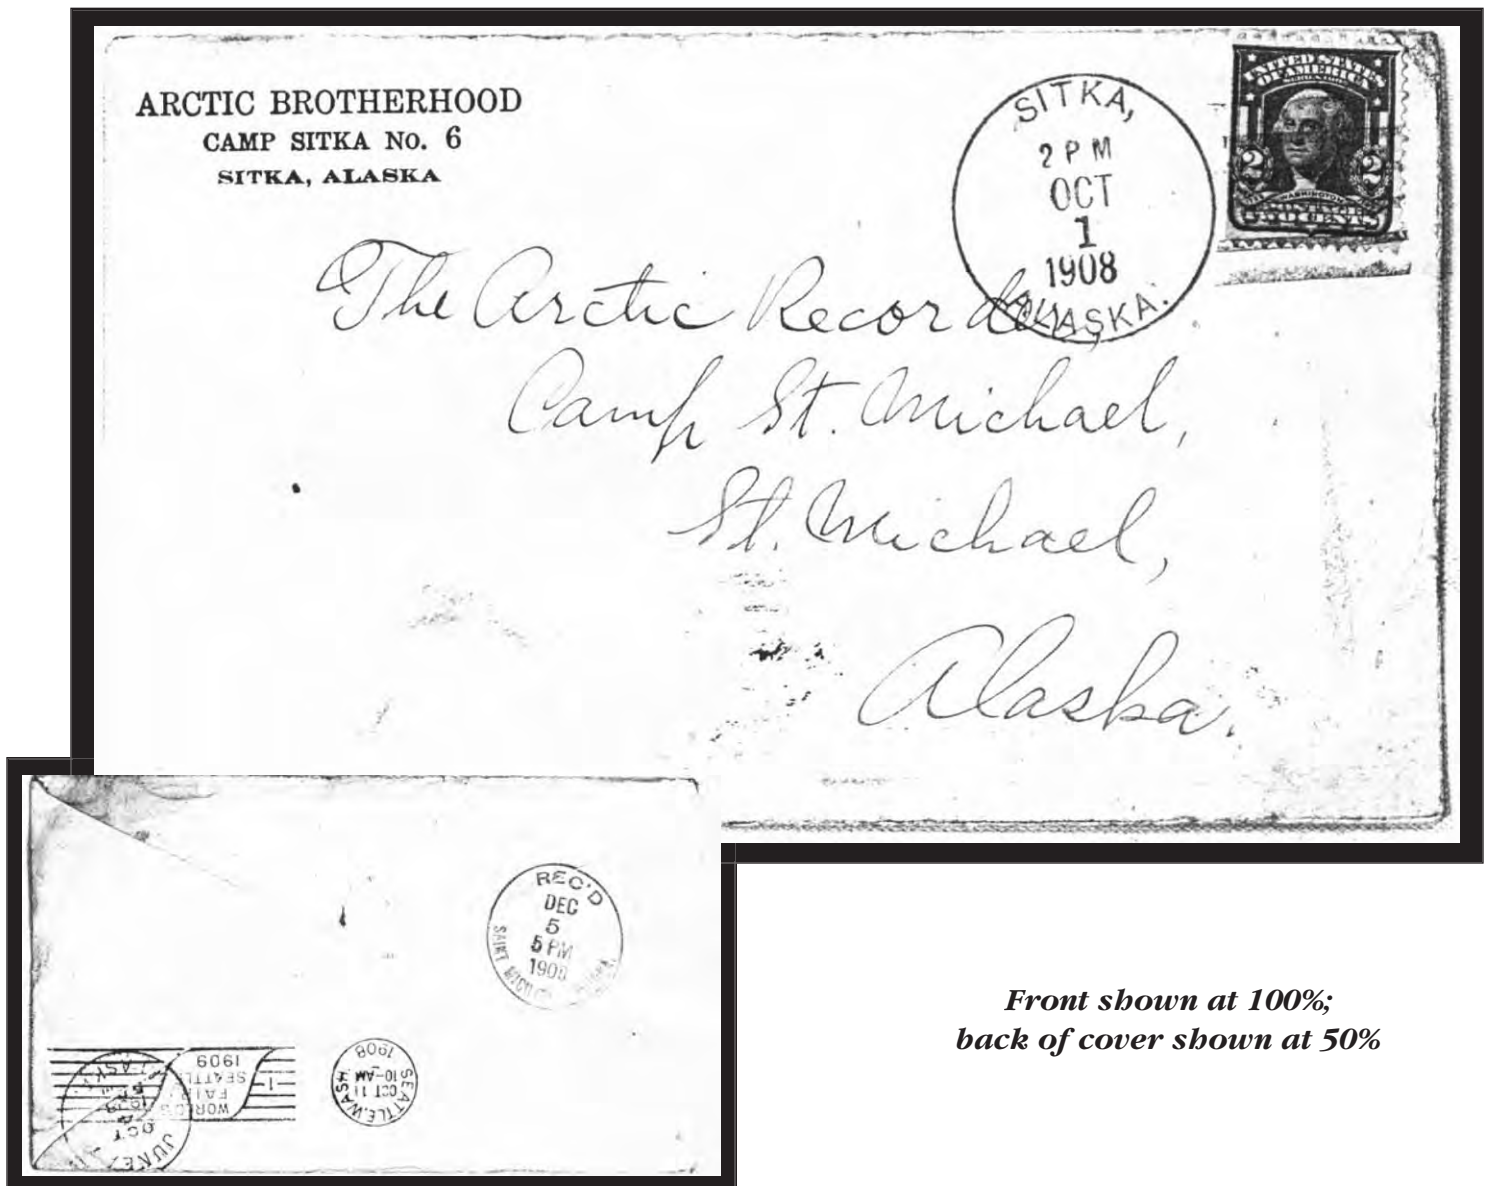 ARCTIC BROTHERHOOD
CAMP SITKA No. 6
SITKA, ALASKA
SITKA,
2 PM
OCT
1
1908
ALASKA.
UNITED STATES
OF AMERICA
2 2
WASHINGTON
TWO CENTS
The Arctic Recorder,
Camp St. Michael,
St. Michael,
Alaska.
REC'D
DEC
5
5 PM
1908
SAINT
WORLD'S
FAIR
SEATTLE
1909
1
SEATTLE, WASH.
OCT 11
10-AM
1908
OCT
Front shown at 100%;
back of cover shown at 50%